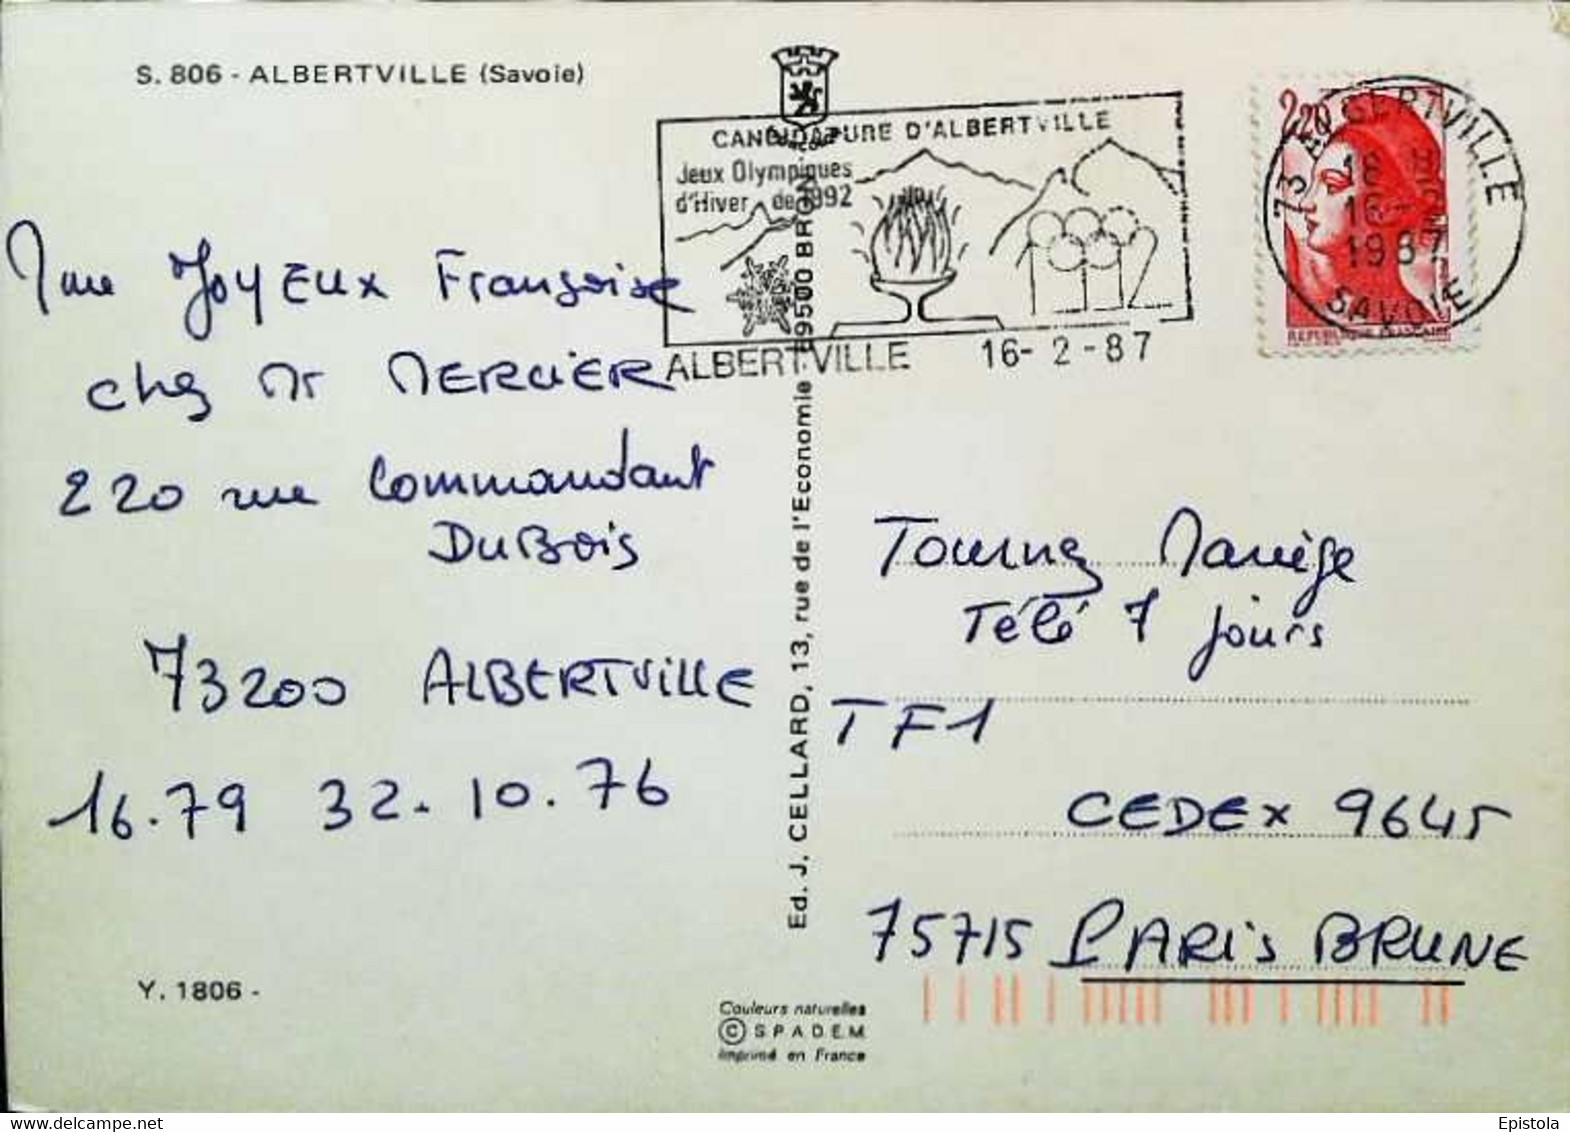 S. 806 - ALBERTVILLE (Savoie)
CANDIDATURE D'ALBERTVILLE
Jeux Olympiques
d'Hiver de 1992
ALBERTVILLE 16-2-87
2,20
73 ALBERTVILLE
16 H
16-2
1987
SAVOIE
Mme JOYEUX Françoise
chez Mr MERCIER
220 rue Commandant
DuBois
73200 ALBERTVILLE
16.79 32.10.76
Ed. J. CELLARD, 13, rue de l'Economie 69500 BRON
Tournez Manège
Télé 7 jours
TF1
CEDEX 9645
75715 PARIS BRUNE
Y. 1806 -
Couleurs naturelles
© SPADEM
Imprimé en France
Epistola